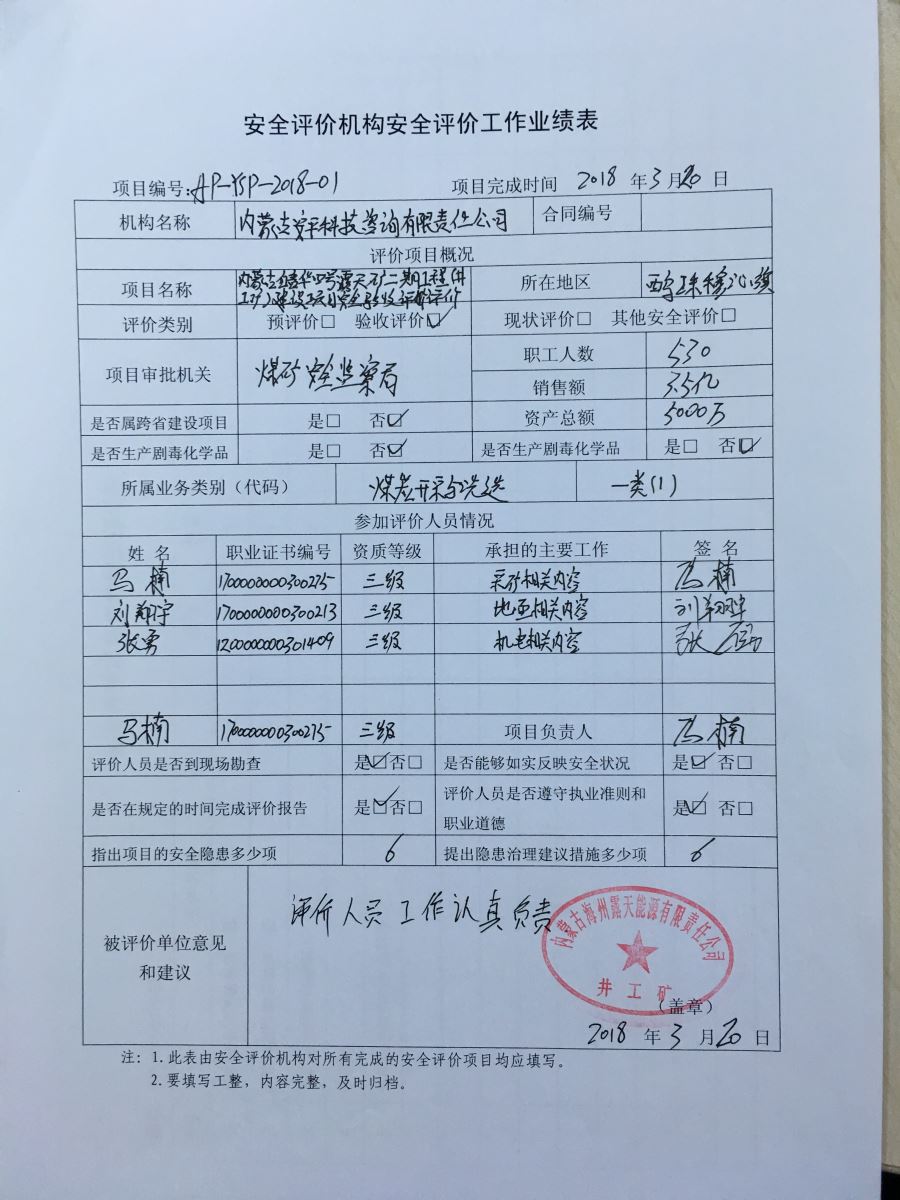 安全评价机构安全评价工作业绩表
项目编号:AP-YSP-2018-01 项目完成时间 2018 年 3 月 20 日
机构名称 内蒙古安科技咨询有限责任公司 合同编号
评价项目概况
项目名称 内蒙古 华四号露天矿二期工程(井
工矿)建设项目安全验收评价 所在地区 西乌珠穆沁旗
评价类别 预评价□ 验收评价☑ 现状评价□ 其他安全评价□
项目审批机关 煤矿安全监察局 职工人数 530
销售额 3.5亿
是否属跨省建设项目 是□ 否☑ 资产总额 5000万
是否生产剧毒化学品 是□ 否☑ 是否生产剧毒化学品 是□ 否☑
所属业务类别(代码) 煤炭开采与洗选 一类(1)
参加评价人员情况
姓 名 职业证书编号 资质等级 承担的主要工作 签 名
马楠 1700000000300275 三级 采矿相关内容 马楠
刘翔宇 1700000000300213 三级 地质相关内容 刘翔宇
张勇 1200000000301409 三级 机电相关内容 张勇
马楠 1700000000300275 三级 项目负责人 马楠
评价人员是否到现场勘查 是☑否□ 是否能够如实反映安全状况 是☑ 否□
是否在规定的时间完成评价报告 是☑否□ 评价人员是否遵守执业准则和
职业道德 是☑ 否□
指出项目的安全隐患多少项 6 提出隐患治理建议措施多少项 6
被评价单位意见
和建议
评价人员工作认真负责
内蒙古海州露天能源有限责任公司
井工矿
(盖章)
2018 年 3 月 20 日
注: 1.此表由安全评价机构对所有完成的安全评价项目均应填写。
2.要填写工整,内容完整,及时归档。